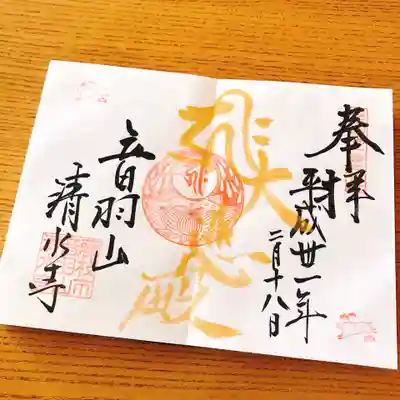 奉拝
平成卅一年
二月十八日
大悲殿
音羽山
清水寺